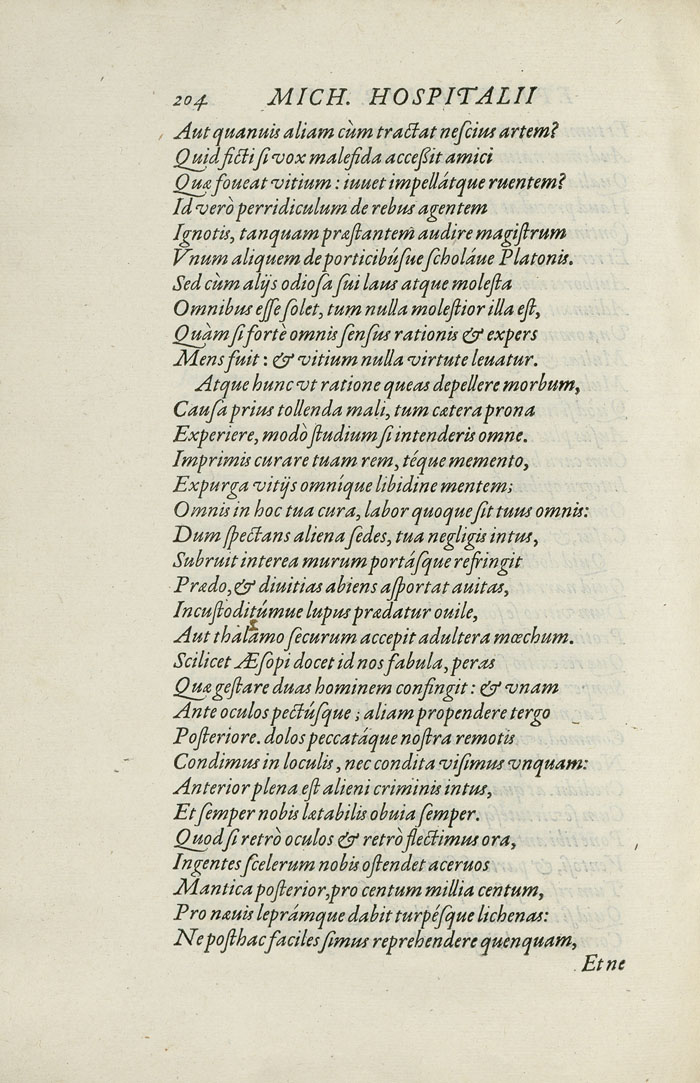 204 MICH. HOSPITALII
Aut quanuis aliam cùm tractat nescius artem?
Quid ficti si vox malefida acceßit amici
Quæ foueat vitium: iuuet impellátque ruentem?
Id verò perridiculum de rebus agentem
Ignotis, tanquam præstantem audire magistrum
Vnum aliquem de porticibúsue scholáue Platonis.
Sed cùm alijs odiosa sui laus atque molesta
Omnibus esse solet, tum nulla molestior illa est,
Quàm si fortè omnis sensus rationis & expers
Mens fuit: & vitium nulla virtute leuatur.
Atque hunc vt ratione queas depellere morbum,
Causa prius tollenda mali, tum cætera prona
Experiere, modò studium si intenderis omne.
Imprimis curare tuam rem, téque memento,
Expurga vitijs omníque libidine mentem;
Omnis in hoc tua cura, labor quoque sit tuus omnis:
Dum spectans aliena sedes, tua negligis intus,
Subruit interea murum portásque refringit
Prædo, & diuitias abiens asportat auitas,
Incustoditúmue lupus prædatur ouile,
Aut thalamo securum accepit adultera mœchum.
Scilicet Æsopi docet id nos fabula, peras
Quæ gestare duas hominem confingit: & vnam
Ante oculos pectúsque; aliam propendere tergo
Posteriore. dolos peccatáque nostra remotis
Condimus in loculis, nec condita visimus vnquam:
Anterior plena est alieni criminis intus,
Et semper nobis lætabilis obuia semper.
Quod si retrò oculos & retrò flectimus ora,
Ingentes scelerum nobis ostendet aceruos
Mantica posterior, pro centum millia centum,
Pro næuis leprámque dabit turpésque lichenas:
Ne posthac faciles simus reprehendere quenquam,
Et ne